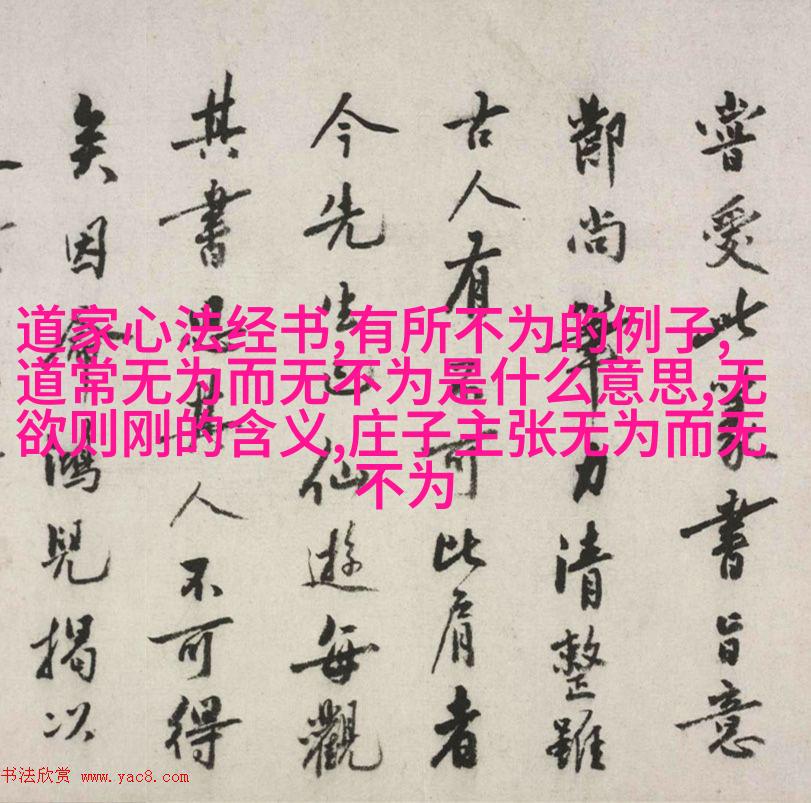 道家心法经书,有所不为的例子,
道常无为而无不为是什么意思,无
欲则刚的含义,庄子主张无为而无
不为
嘗愛此書旨意
尚筆力清整雖
古人有可比肩者
今先生已仙遊每觀
其書思其人不可得
矣因鴻兒揭以
书法欣赏 www.yac8.com